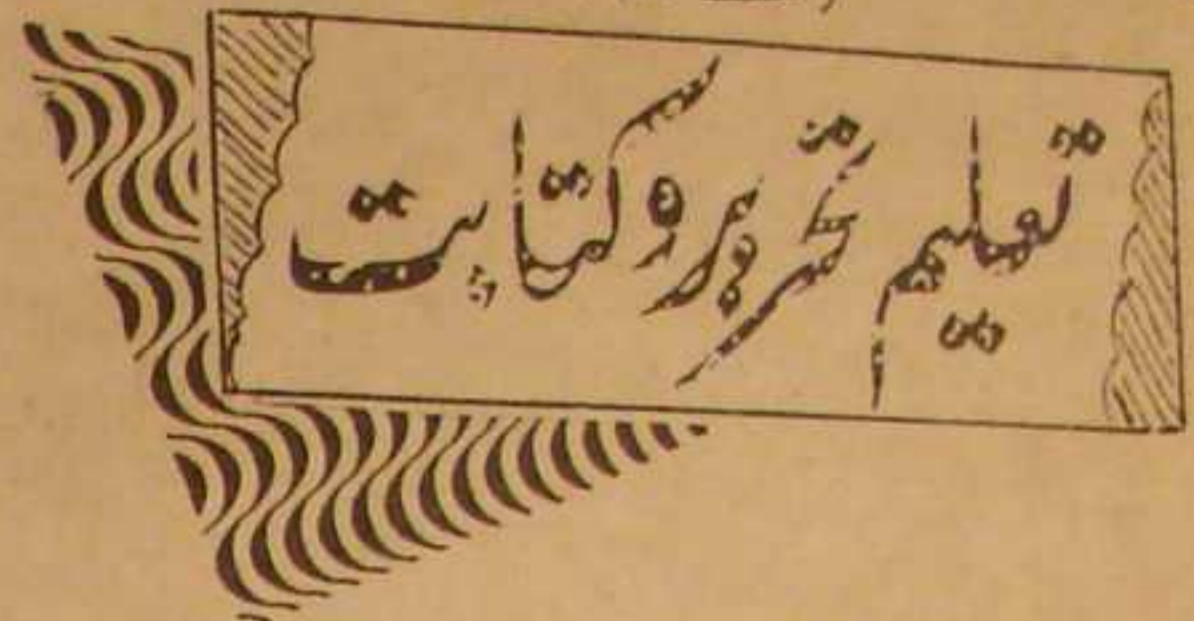 تعلیم تحریر و کتابت